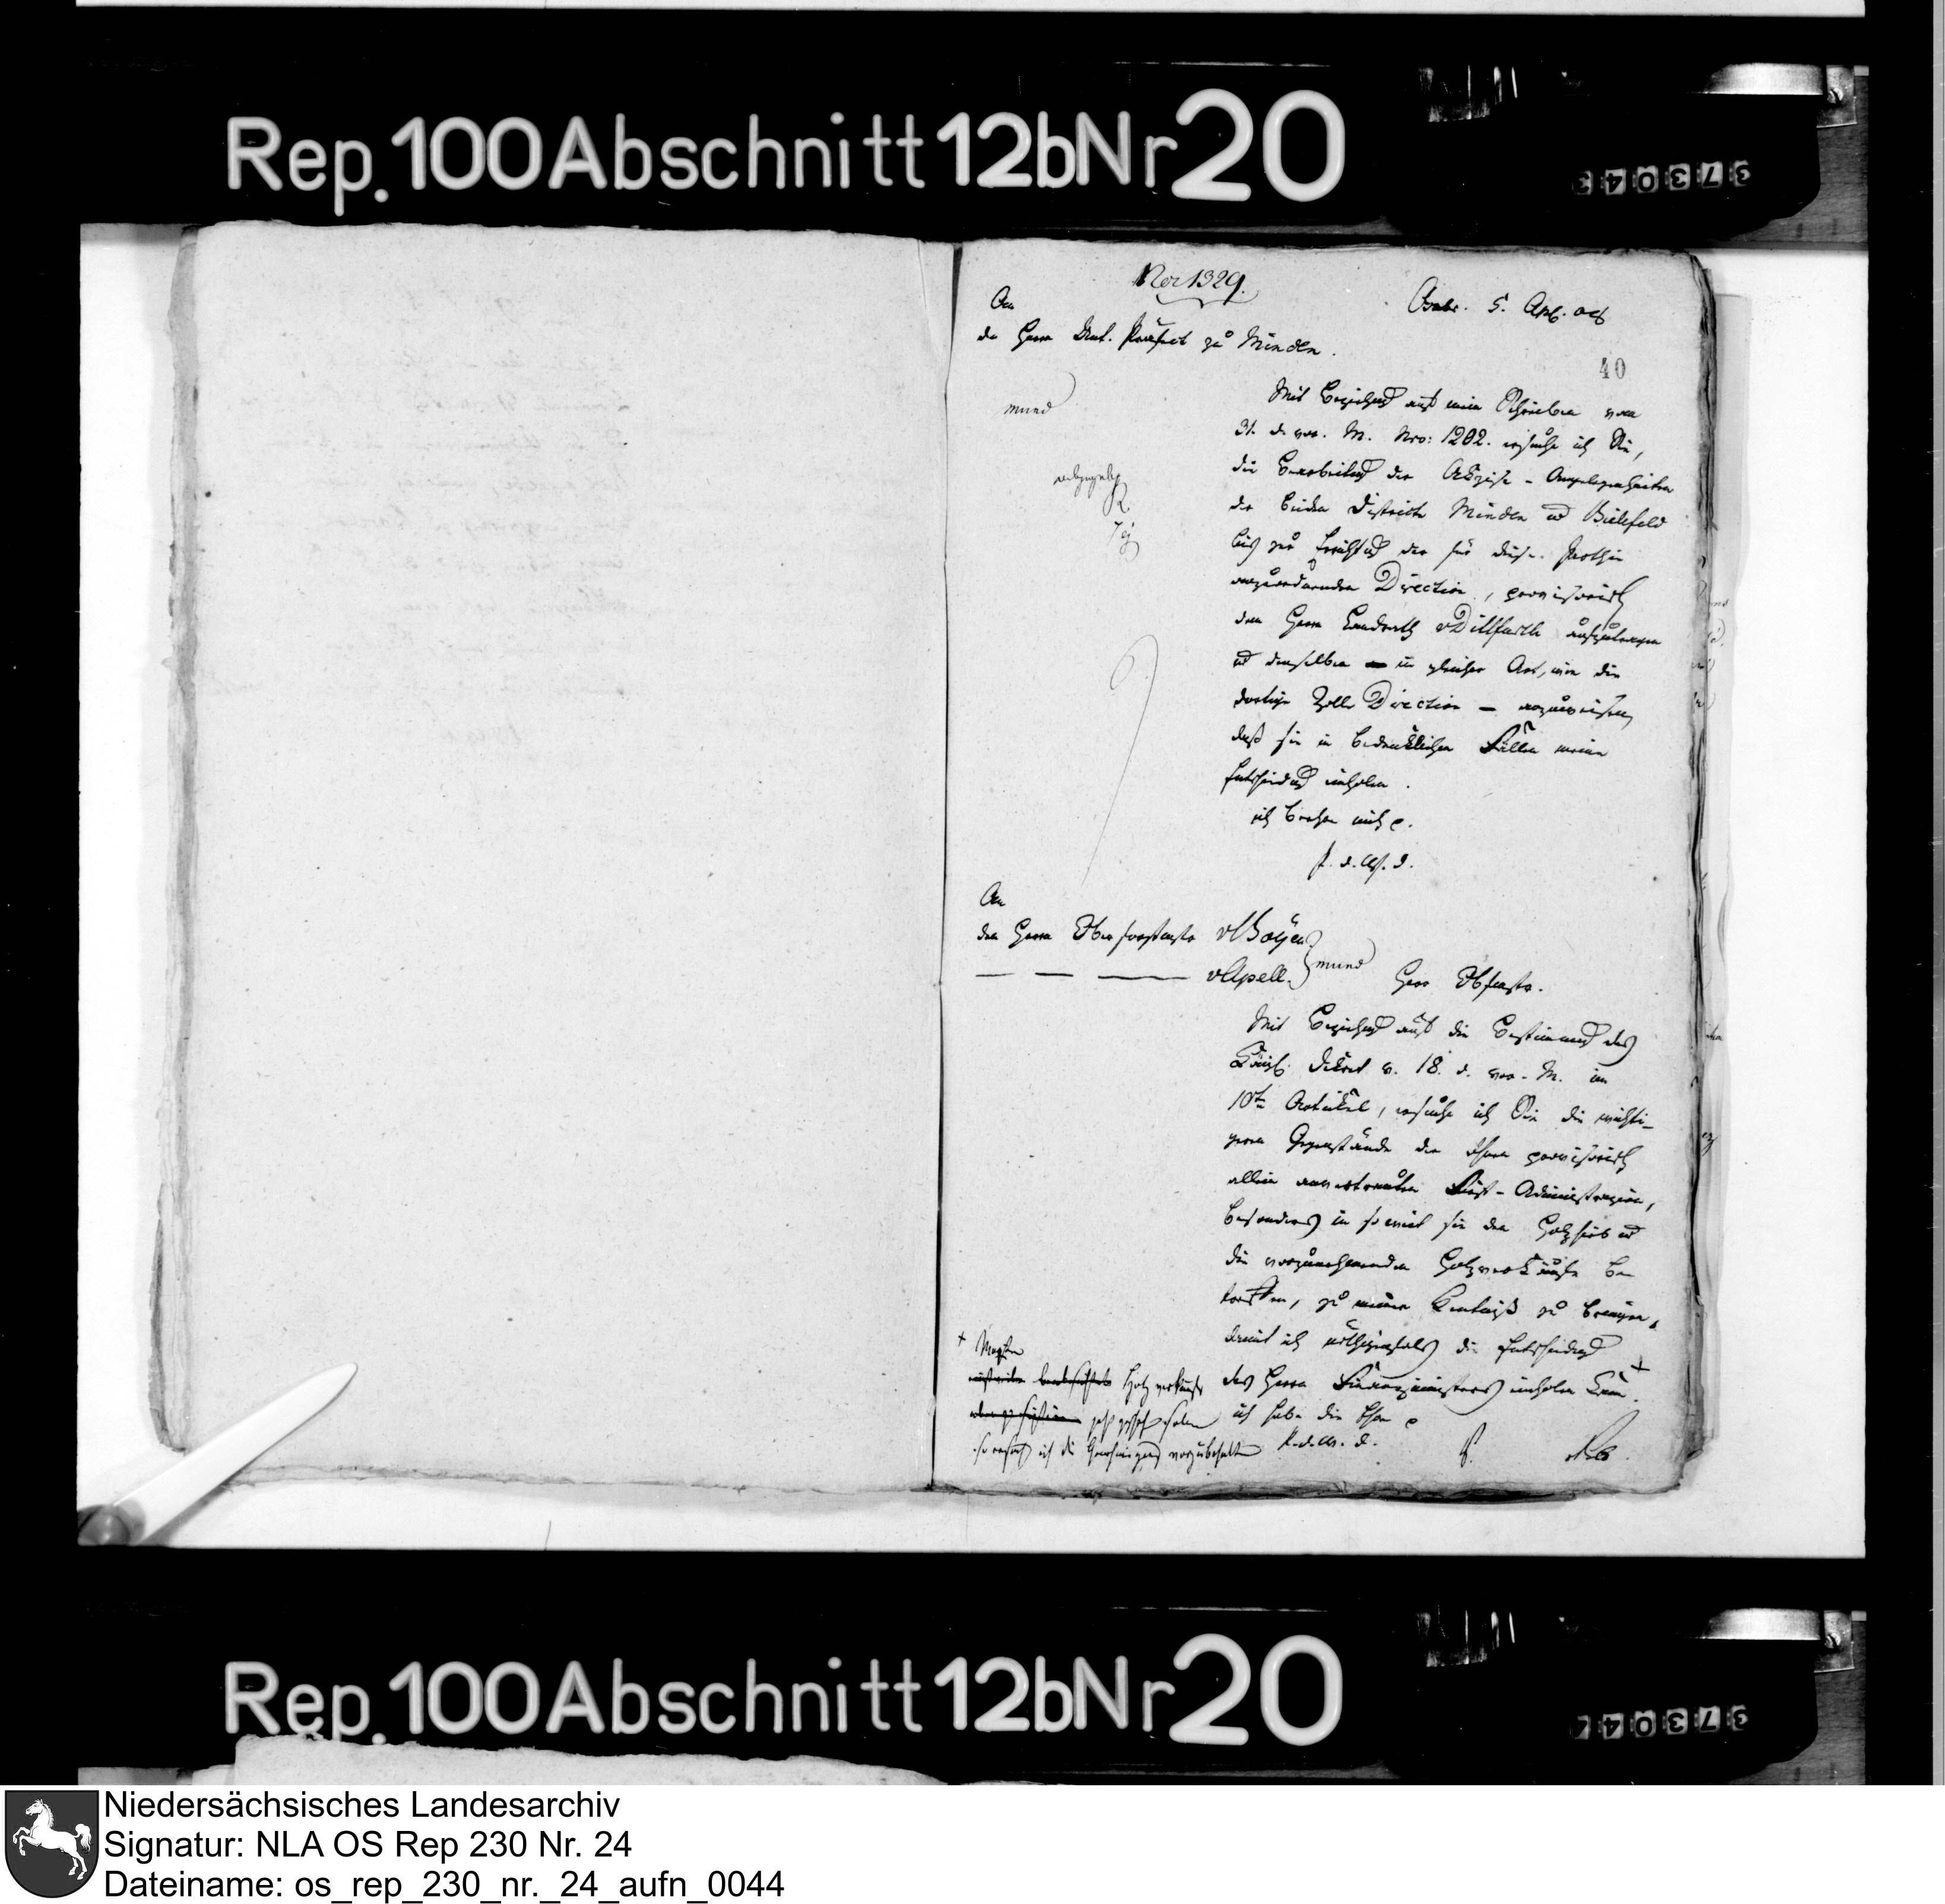 Rep. 100 Abschnitt 12b Nr 20
373043
Nro 1329.
Osnbr. 5. Apr. 08
An
den Herrn Unt. Präfect zu Minden.
40
mund
Mit Beziehung auf mein Schreiben vom
31. d. vor. M. Nro: 1202. ersuche ich Sie,
die Bearbeitung der Akzise-Angelegenheiten
der beiden Districte Minden und Bielefeld
bis zur Errichtung der für diese Parthie
anzuordnenden Direction, provisorisch
dem Herrn Landrath vDittfurth aufzutragen
und denselben in gleicher Art, wie die
dortige Zoll Direction — anzuweisen,
daß sie in bedenklichen Fällen meine
Entscheidung einholen.
ich beehre mich p.
P. d. Ws. D.
An
den Herrn Oberforstmstr vBoÿen
— — — vApell. mund
Herr Obfmstr.
Mit Beziehung auf die Bestimmung des
Königl. Dekret v. 18. d. vor. M. im
10ten Artikel, ersuche ich Sie die wichti-
gern Gegenstände der Ihnen provisorisch
allein anvertrauten Forst-Administrazion,
besonders in so weit sie den Holzhieb und
die vorzunehmenden Holzverkäufe be
treffen, zu meiner Kentniß zu bringen,
damit ich nöthigenfals die Entscheidung
des Herrn Finanzministers einholen kann. +
ich habe die Ehre p
P. d. Ws. D.
+
Holz verkäufe
so ersuche ich die Genehmigung vorzubehalten
Rep. 100 Abschnitt 12b Nr 20
Niedersächsisches Landesarchiv
Signatur: NLA OS Rep 230 Nr. 24
Dateiname: os_rep_230_nr._24_aufn_0044